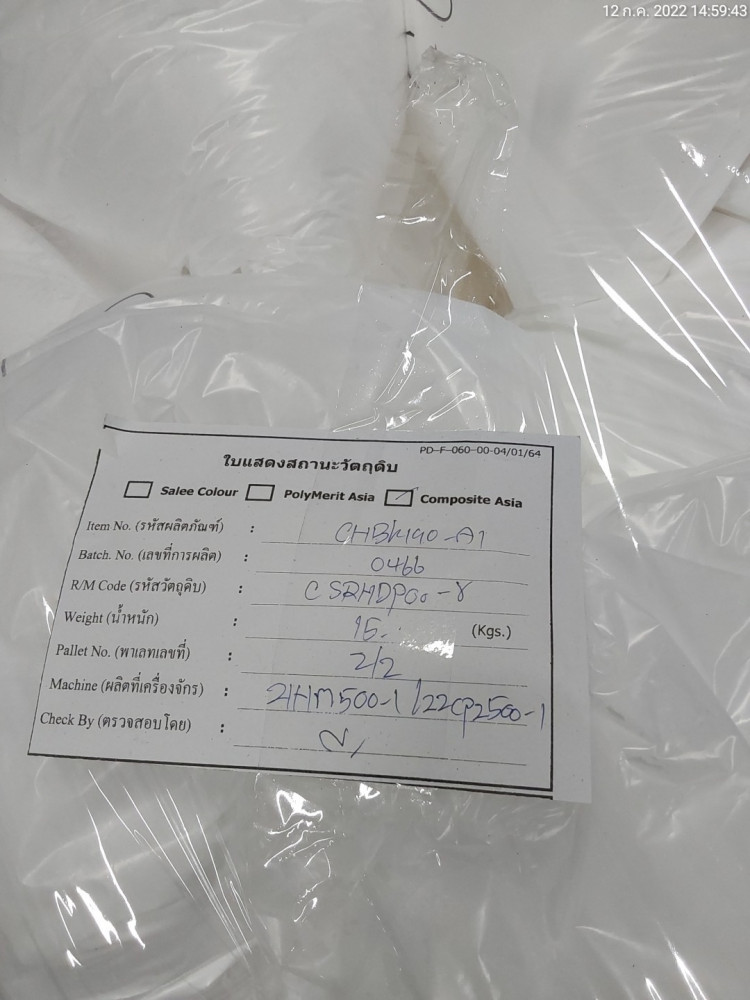 12 ก.ค. 2022 14:59:43
PD-F-060-00-04/01/64
ใบแสดงสถานะวัตถุดิบ
Salee Colour PolyMerit Asia Composite Asia
Item No. (รหัสผลิตภัณฑ์) : CHBK190-A1
Batch. No. (เลขที่การผลิต) : 0466
R/M Code (รหัสวัตถุดิบ) : CSRHDP00-8
Weight (น้ำหนัก) : 15.- (Kgs.)
Pallet No. (พาเลทเลขที่) : 2/2
Machine (ผลิตที่เครื่องจักร) : 21HM500-1 /22CP2500-1
Check By (ตรวจสอบโดย) :